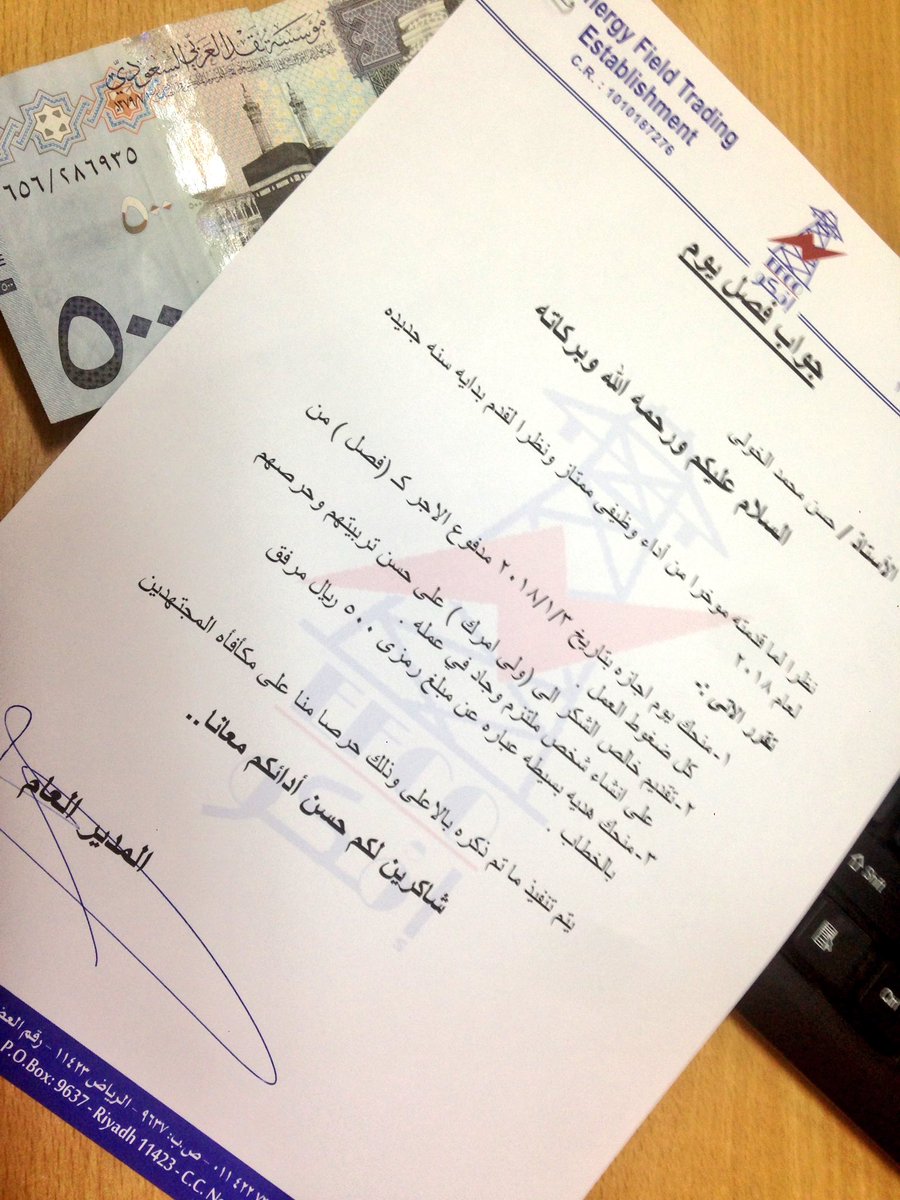 مؤسسة نقد العربي السعودي
٦٥٦/٢٨٦٩٣٥
٥٠٠
٥٠٠
Energy Field Trading
Establishment
C.R. : 1010187276
EFCO
إفكو
جواب فصل يوم
الأستاذ / حسن محمد الخولى
السلام عليكم ورحمه الله وبركاته
نظرا لما قدمته موخرا من أداء وظيفى ممتاز ونظرا لقدم بدايه سنه جديده
لعام ٢٠١٨
تقرر الاتى :-
١-منحك يوم اجازه بتاريخ ٢٠١٨/١/٣ مدفوع الاجر كـ (فصل ) من
كل ضغوط العمل .
٢-تقديم خالص الشكر الى (ولى امرك ) على حسن تربيتهم وحرصهم
على انشاء شخص ملتزم وجاد في عمله .
٣-منحك هديه بسيطه عباره عن مبلغ رمزى ٥٠٠ ريال مرفق
بالخطاب .
يتم تنفيذ ما تم ذكره بالاعلى وذلك حرصا منا على مكافأه المجتهدين
شاكرين لكم حسن أدائكم معانا..
المدير العام
EFCO
إفكو
ص.ب: ٩٦٣٧ - الرياض ١١٤٢٣ - رقم
P.O.Box: 9637 - Riyadh 11423 - C.C.
Shift
Ctrl